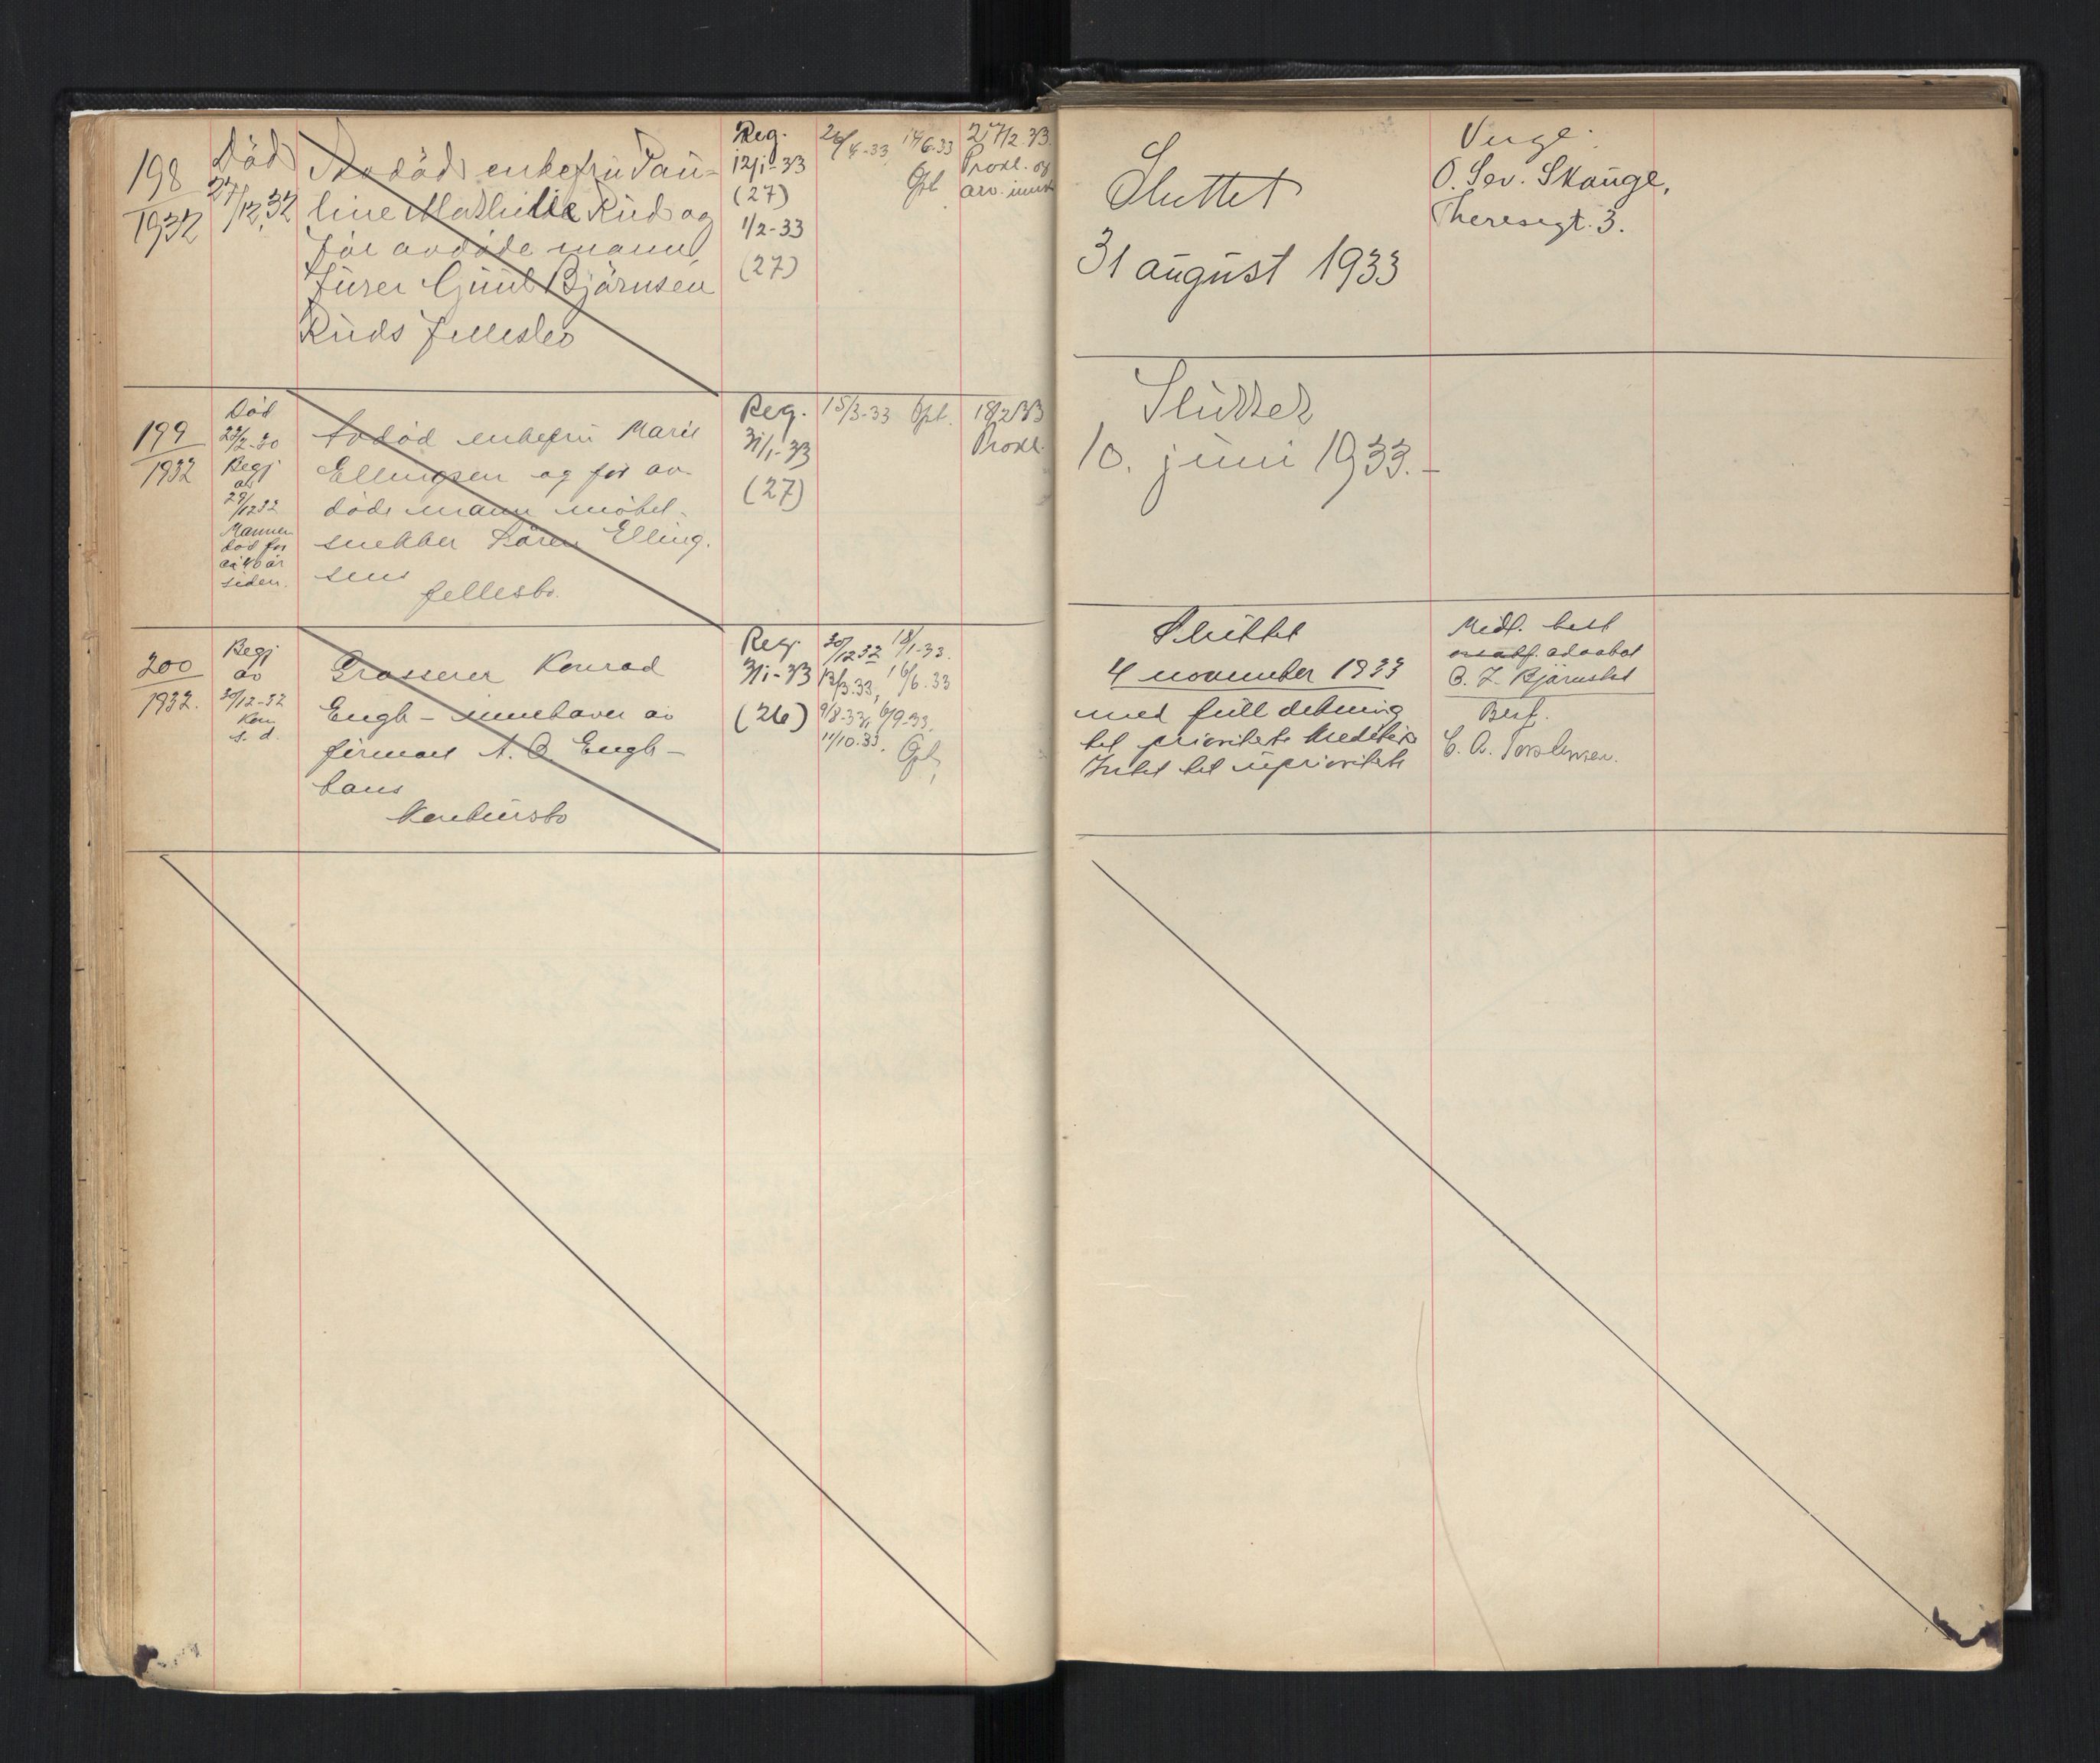 198
1932
Död
27/12.32
Avdöd enkefru Pau-
line Mathilde Ruud og
för avdöde mann
furer Gunl Björnsen
Ruuds fellesbo
Reg.
12/1-33
(27)
1/2-33
(27)
14/6.33
Opl
217/2.33.
Prokl. og
arv. innk
Sluttet
31 august 1933
Verge:
O. Sev. Skauge,
Theresegt. 3.
199
1932
Död
23/2-30
Begj
av
29/12 32
Mannen
död for
ca 40 år
siden.
Avdöd enkefru Marie
Ellingsen og for av-
döde mann möbel-
snekker Sören Elling-
sens
fellesbo.
Reg.
31/1-33
(27)
15/3-33 Opl.
18/2 33
Prokl.
Sluttet
10. juni 1933.-
200
1932.
Begj
av
30/12-32
Kon.
s. d.
Grosserer Konrad
Engh - innehaver av
firmaet A. O. Engh -
hans
konkursbo
Reg.
31/1-33
(26)
30/12 32 18/1-33.
13/3.33, 16/6.33
9/8-33, 6/9-33.
11/10.33. Opl,
Sluttet
4 november 1933
med full dekning
til prioriterte kreditorer
Intet til uprioriterte
Midl. best
advokat
Björnstad
Best.
C. A. Torstensen.